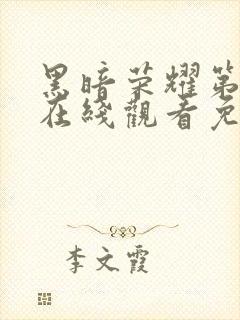 黑暗荣耀第
在线觀看免
李文霞